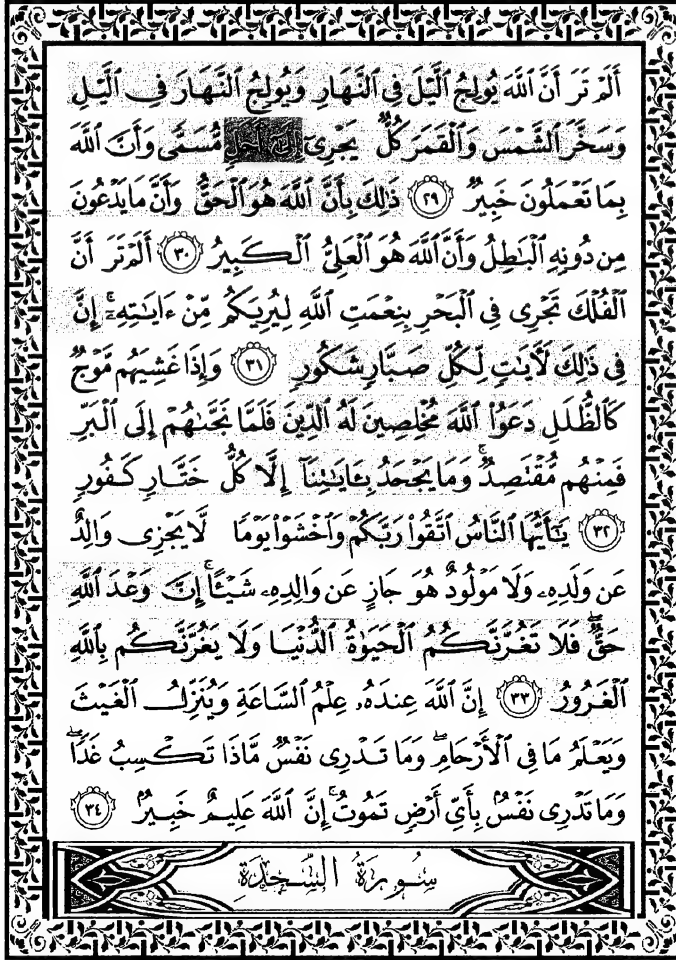 أَلَمْ تَرَ أَنَّ ٱللَّهَ يُولِجُ ٱلَّيْلَ فِى ٱلنَّهَارِ وَيُولِجُ ٱلنَّهَارَ فِى ٱلَّيْلِ
وَسَخَّرَ ٱلشَّمْسَ وَٱلْقَمَرَ كُلٌّ يَجْرِىٓ إِلَىٰٓ أَجَلٍ مُّسَمًّى وَأَنَّ ٱللَّهَ
بِمَا تَعْمَلُونَ خَبِيرٌ ٢٩ ذَٰلِكَ بِأَنَّ ٱللَّهَ هُوَ ٱلْحَقُّ وَأَنَّ مَا يَدْعُونَ
مِن دُونِهِ ٱلْبَٰطِلُ وَأَنَّ ٱللَّهَ هُوَ ٱلْعَلِىُّ ٱلْكَبِيرُ ٣٠ أَلَمْ تَرَ أَنَّ
ٱلْفُلْكَ تَجْرِى فِى ٱلْبَحْرِ بِنِعْمَتِ ٱللَّهِ لِيُرِيَكُم مِّنْ ءَايَٰتِهِۦٓ ۚ إِنَّ
فِى ذَٰلِكَ لَءَايَٰتٍ لِّكُلِّ صَبَّارٍ شَكُورٍ ٣١ وَإِذَا غَشِيَهُم مَّوْجٌ
كَٱلظُّلَلِ دَعَوُا۟ ٱللَّهَ مُخْلِصِينَ لَهُ ٱلدِّينَ فَلَمَّا نَجَّىٰهُمْ إِلَى ٱلْبَرِّ
فَمِنْهُم مُّقْتَصِدٌ ۚ وَمَا يَجْحَدُ بِـَٔايَٰتِنَآ إِلَّا كُلُّ خَتَّارٍ كَفُورٍ
٣٢ يَٰٓأَيُّهَا ٱلنَّاسُ ٱتَّقُوا۟ رَبَّكُمْ وَٱخْشَوْا۟ يَوْمًا لَّا يَجْزِى وَالِدٌ
عَن وَلَدِهِۦ وَلَا مَوْلُودٌ هُوَ جَازٍ عَن وَالِدِهِۦ شَيْـًٔا ۚ إِنَّ وَعْدَ ٱللَّهِ
حَقٌّ ۖ فَلَا تَغُرَّنَّكُمُ ٱلْحَيَوٰةُ ٱلدُّنْيَا وَلَا يَغُرَّنَّكُم بِٱللَّهِ
ٱلْغَرُورُ ٣٣ إِنَّ ٱللَّهَ عِندَهُۥ عِلْمُ ٱلسَّاعَةِ وَيُنَزِّلُ ٱلْغَيْثَ
وَيَعْلَمُ مَا فِى ٱلْأَرْحَامِ ۖ وَمَا تَدْرِى نَفْسٌ مَّاذَا تَكْسِبُ غَدًا ۖ
وَمَا تَدْرِى نَفْسٌۢ بِأَىِّ أَرْضٍ تَمُوتُ ۚ إِنَّ ٱللَّهَ عَلِيمٌ خَبِيرٌۢ ٣٤
سُورَةُ السَّجْدَةِ